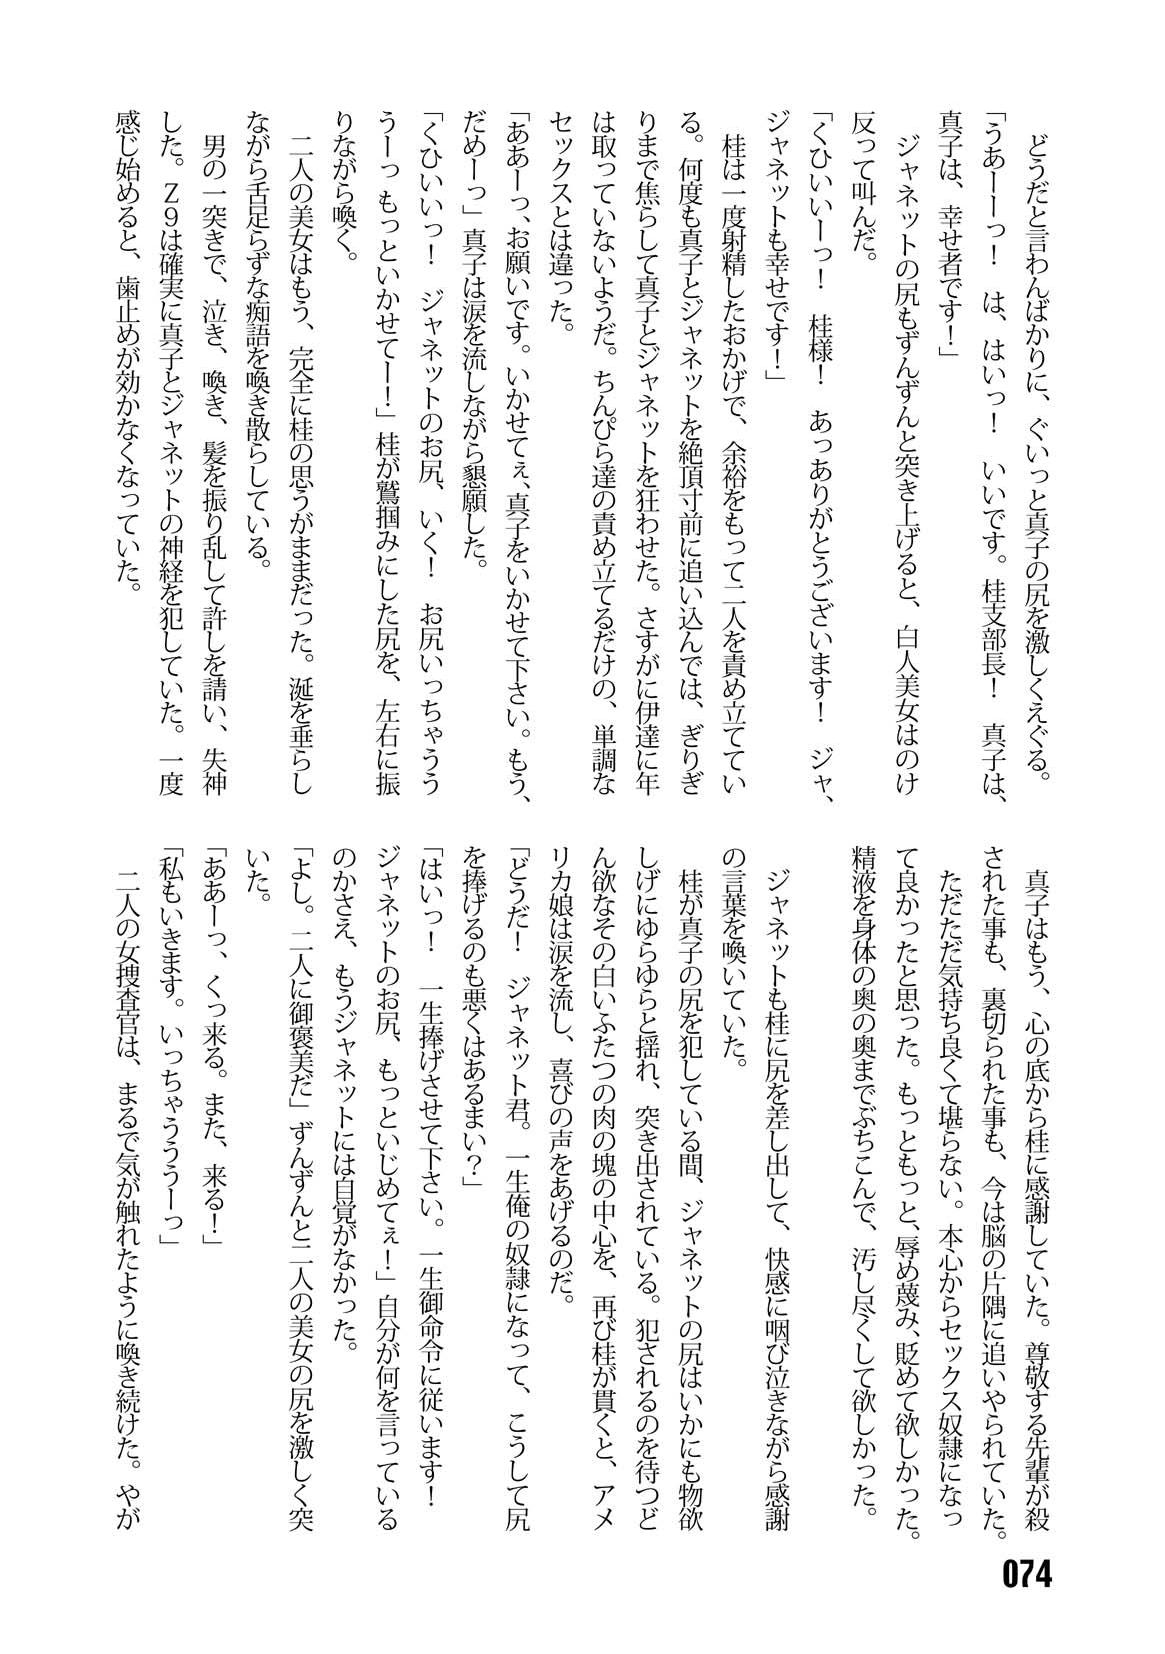 どうだと言わんばかりに、ぐいっと真子の尻を激しくえぐる。
「うあーーっ！　は、はいっ！　いいです。桂支部長！　真子は、
真子は、幸せ者です！」
ジャネットの尻もずんずんと突き上げると、白人美女はのけ
反って叫んだ。
「くひいいーっ！　桂様！　あっありがとうございます！　ジャ、
ジャネットも幸せです！」
桂は一度射精したおかげで、余裕をもって二人を責め立ててい
る。何度も真子とジャネットを絶頂寸前に追い込んでは、ぎりぎ
りまで焦らして真子とジャネットを狂わせた。さすがに伊達に年
は取っていないようだ。ちんぴら達の責め立てるだけの、単調な
セックスとは違った。
「ああーっ、お願いです。いかせてぇ、真子をいかせて下さい。もう、
だめーっ」真子は涙を流しながら懇願した。
「くひいいっ！　ジャネットのお尻、いく！　お尻いっちゃうう
うーっ もっといかせてー！」桂が鷲掴みにした尻を、左右に振
りながら喚く。
二人の美女はもう、完全に桂の思うがままだった。涎を垂らし
ながら舌足らずな痴語を喚き散らしている。
男の一突きで、泣き、喚き、髪を振り乱して許しを請い、失神
した。Z9は確実に真子とジャネットの神経を犯していた。一度
感じ始めると、歯止めが効かなくなっていた。
真子はもう、心の底から桂に感謝していた。尊敬する先輩が殺
された事も、裏切られた事も、今は脳の片隅に追いやられていた。
ただただ気持ち良くて堪らない。本心からセックス奴隷になっ
て良かったと思った。もっともっと、辱め蔑み、貶めて欲しかった。
精液を身体の奥の奥までぶちこんで、汚し尽くして欲しかった。
ジャネットも桂に尻を差し出して、快感に咽び泣きながら感謝
の言葉を喚いていた。
桂が真子の尻を犯している間、ジャネットの尻はいかにも物欲
しげにゆらゆらと揺れ、突き出されている。犯されるのを待つど
ん欲なその白いふたつの肉の塊の中心を、再び桂が貫くと、アメ
リカ娘は涙を流し、喜びの声をあげるのだ。
「どうだ！　ジャネット君。一生俺の奴隷になって、こうして尻
を捧げるのも悪くはあるまい？」
「はいっ！　一生捧げさせて下さい。一生御命令に従います！
ジャネットのお尻、もっといじめてぇ！」自分が何を言っている
のかさえ、もうジャネットには自覚がなかった。
「よし。二人に御褒美だ」ずんずんと二人の美女の尻を激しく突
いた。
「ああーっ、くっ来る。また、来る！」
「私もいきます。いっちゃうううーっ」
二人の女捜査官は、まるで気が触れたように喚き続けた。やが
074